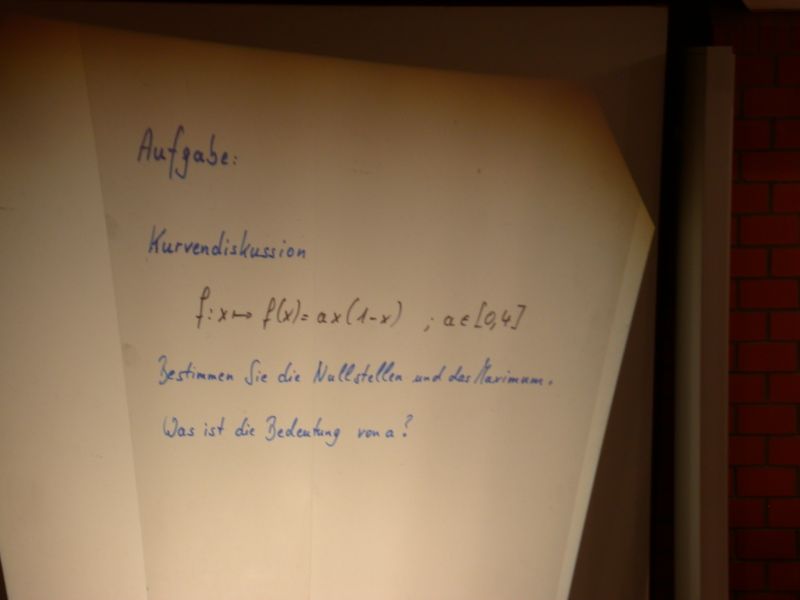 Aufgabe:
Kurvendiskussion
f: x ↦ f(x) = ax(1-x) ; a ∈ [0,4]
Bestimmen Sie die Nullstellen und das Maximum.
Was ist die Bedeutung von a?